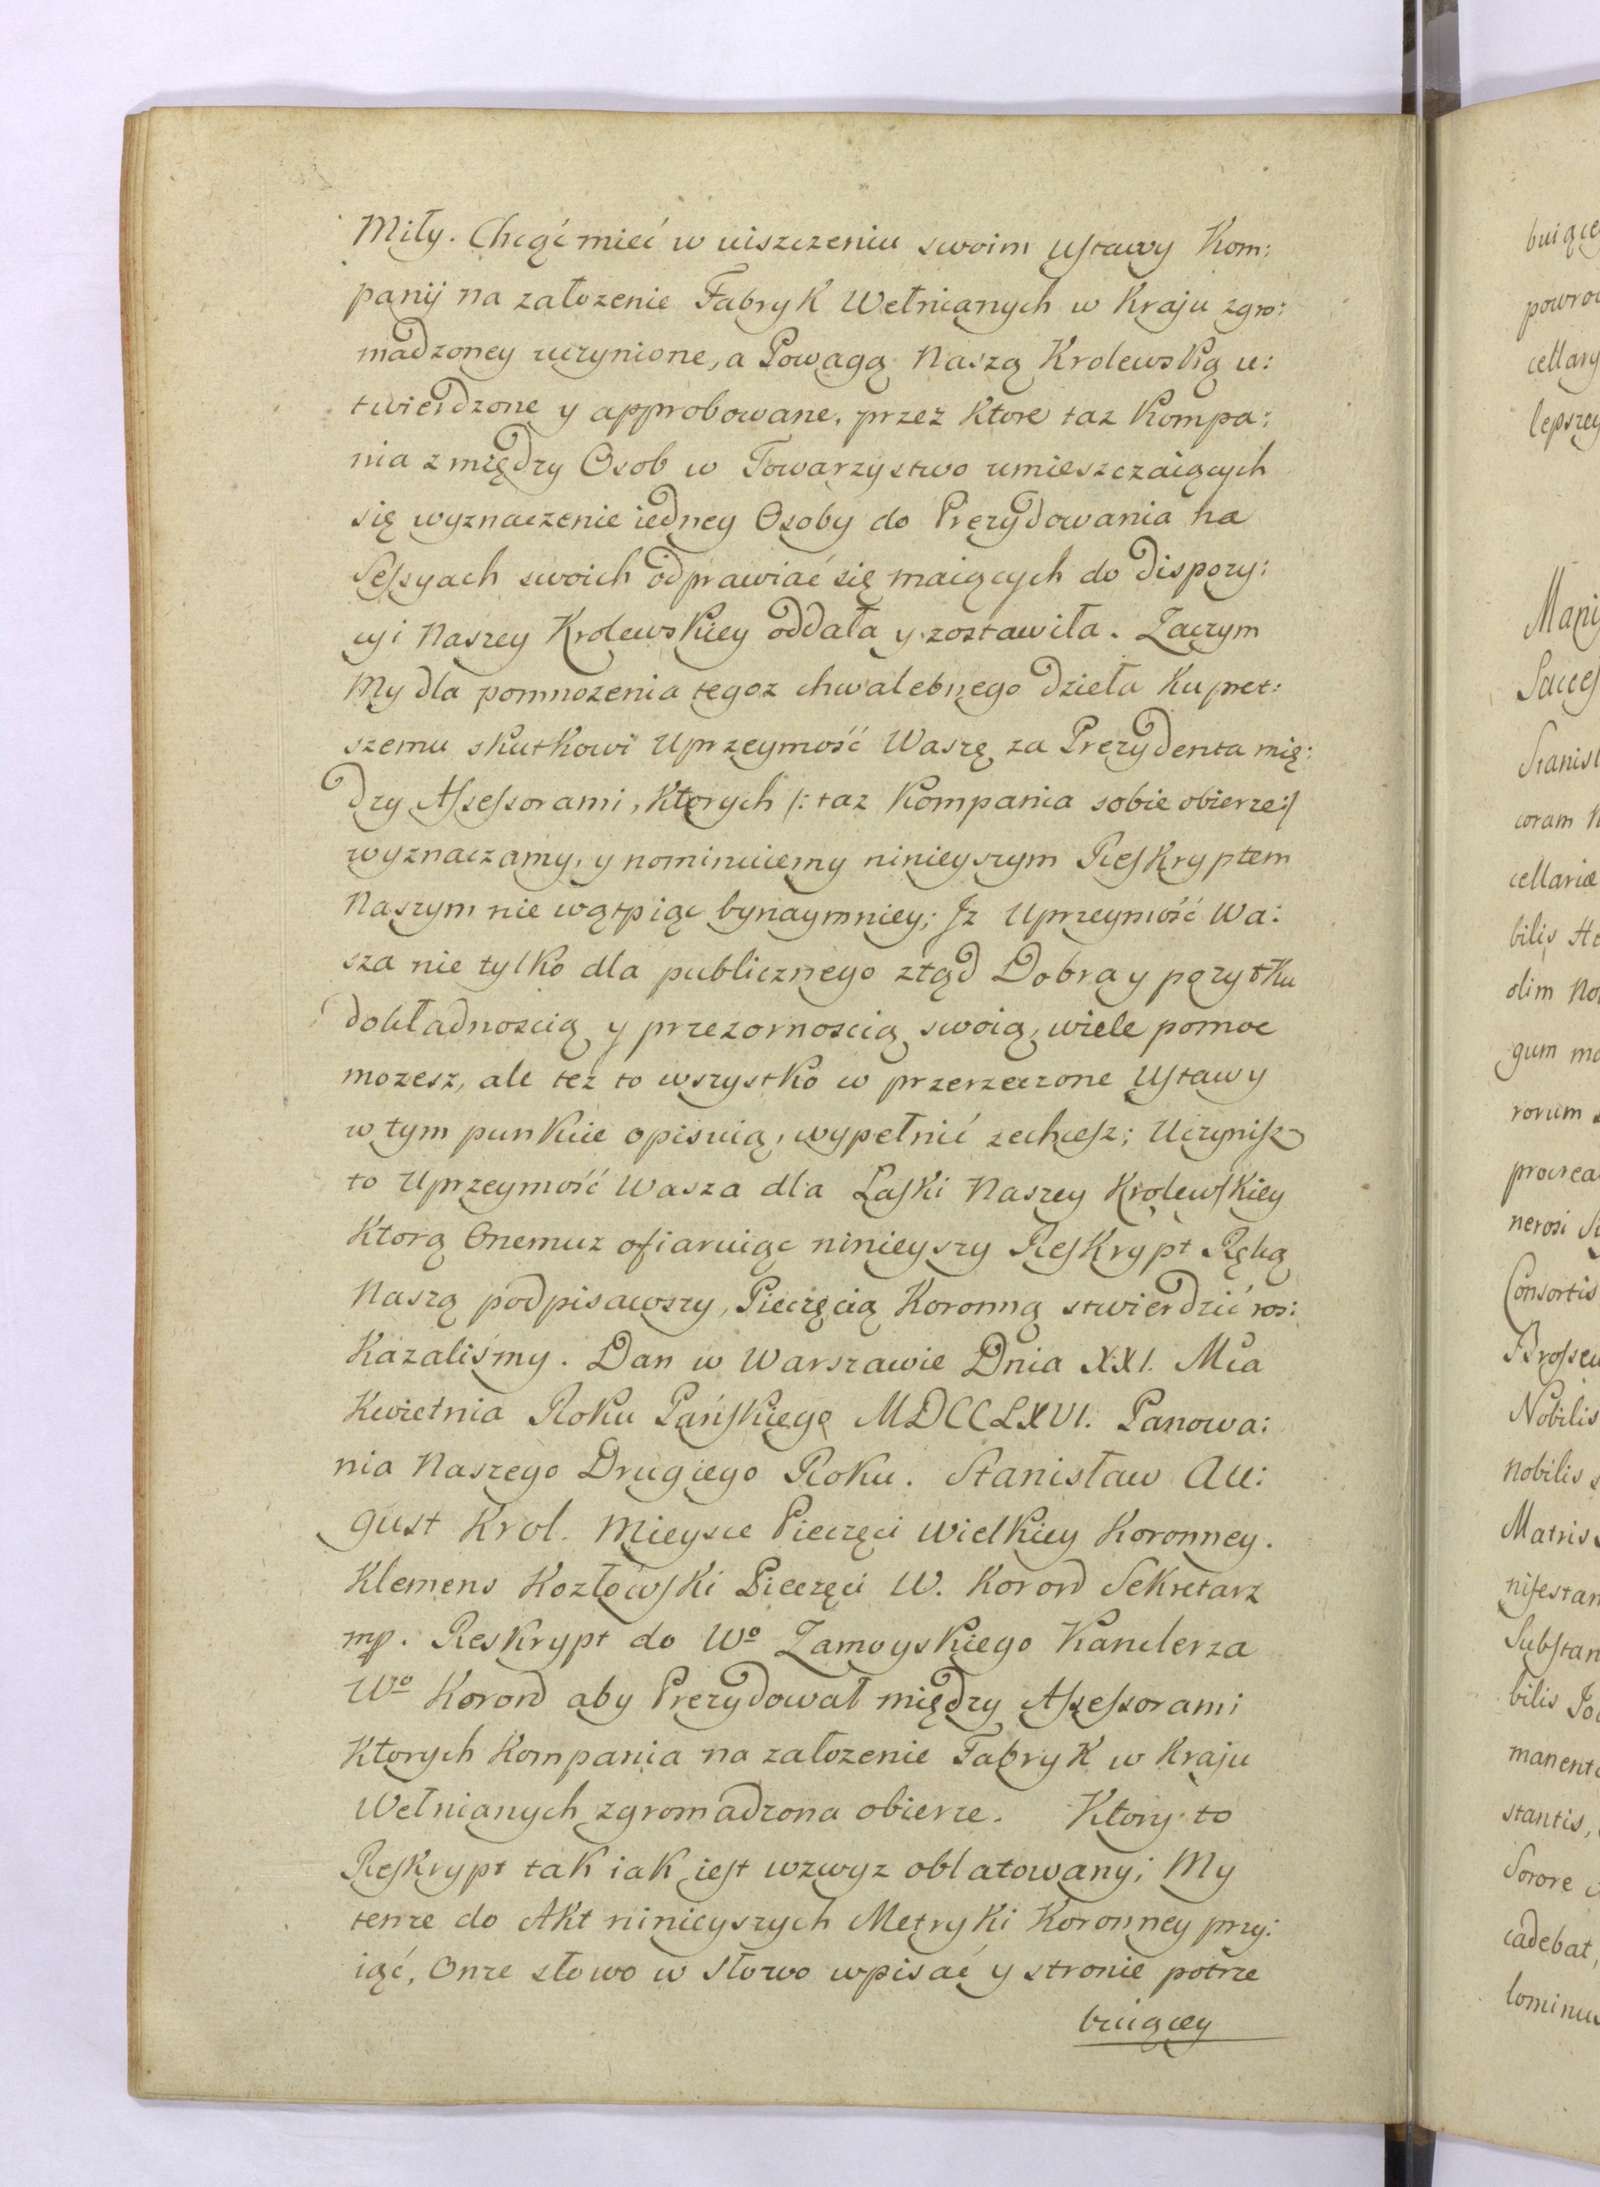 Miły. Chcąć mieć w uiszczeniu swoim Ustawy Kom:
panij na załozenie Fabryk Wełnianych w Kraju zgro:
madzoney uczynione, a Powagą Naszą Krolewską u:
twierdzone y approbowane, przez ktore taz Kompa:
nia z między Osob w Towarzystwo umieszczaiących
się wyznaczenie iedney Osoby do Prezydowania na
Sessyach swoich odprawiać się maiących do dispozy:
cyi Naszey Krolewskiey oddała y zostawiła. Zaczym
My dla pomnozenia tegoz chwalebnego dzieła ku pręt:
szemu skutkowi Uprzeymość Waszę za Prezydenta mię:
dzy Assessorami, ktorych /: taz Kompania sobie obierze :/
wyznaczamy, y nominuiemy ninieyszym Reskryptem
Naszym nie wątpiąc bynaymniey; Jz Uprzeymość Wa:
sza nie tylko dla publicznego ztąd Dobra y pozytku
dokładnoscią y przezornoscią swoią, wiele pomoc
mozesz, ale tez to wszystko w przerzeczone Ustawy
w tym punkcie opisuią, wypełnić zechcesz; Uczynisz
to Uprzeymość Wasza dla Łaski Naszey Krolewskiey
ktorą Onemuz ofiaruiąc ninieyszy Reskrypt Ręką
Naszą podpisawszy, Pieczęcią Koronną stwierdzić roz:
kazaliśmy. Dan w Warszawie Dnia XXI. Mca
Kwietnia Roku Pańskiego MDCCLXVI. Panowa:
nia Naszego Drugiego Roku. Stanisław Au:
gust Krol. Mieysce Pieczęci Wielkiey Koronney.
Klemens Kozłowski Pieczęci W. Koron Sekretarz
mp. Reskrypt do Wo Zamoyskiego Kanclerza
Wo Koron aby Prezydował między Assessorami
ktorych Kompania na załozenie Fabryk w Kraju
Wełnianych zgromadzona obierze. Ktory to
Reskrypt tak iak iest wzwyz oblatowany; My
tenze do Akt ninieyszych Metryki Koronney przy:
iąć, Onze słowo w słowo wpisać y stronie potrze
buiącey
buiące
powro
cellary
lepszey
Stanisl
coram
cellariæ
bilis
olim
gum
rorum
procrea
nerosi
Consortis
Nobilis
nobilis
Matris
nifestan
Substan
bilis
manent
stantis,
Sorore
cadebat,